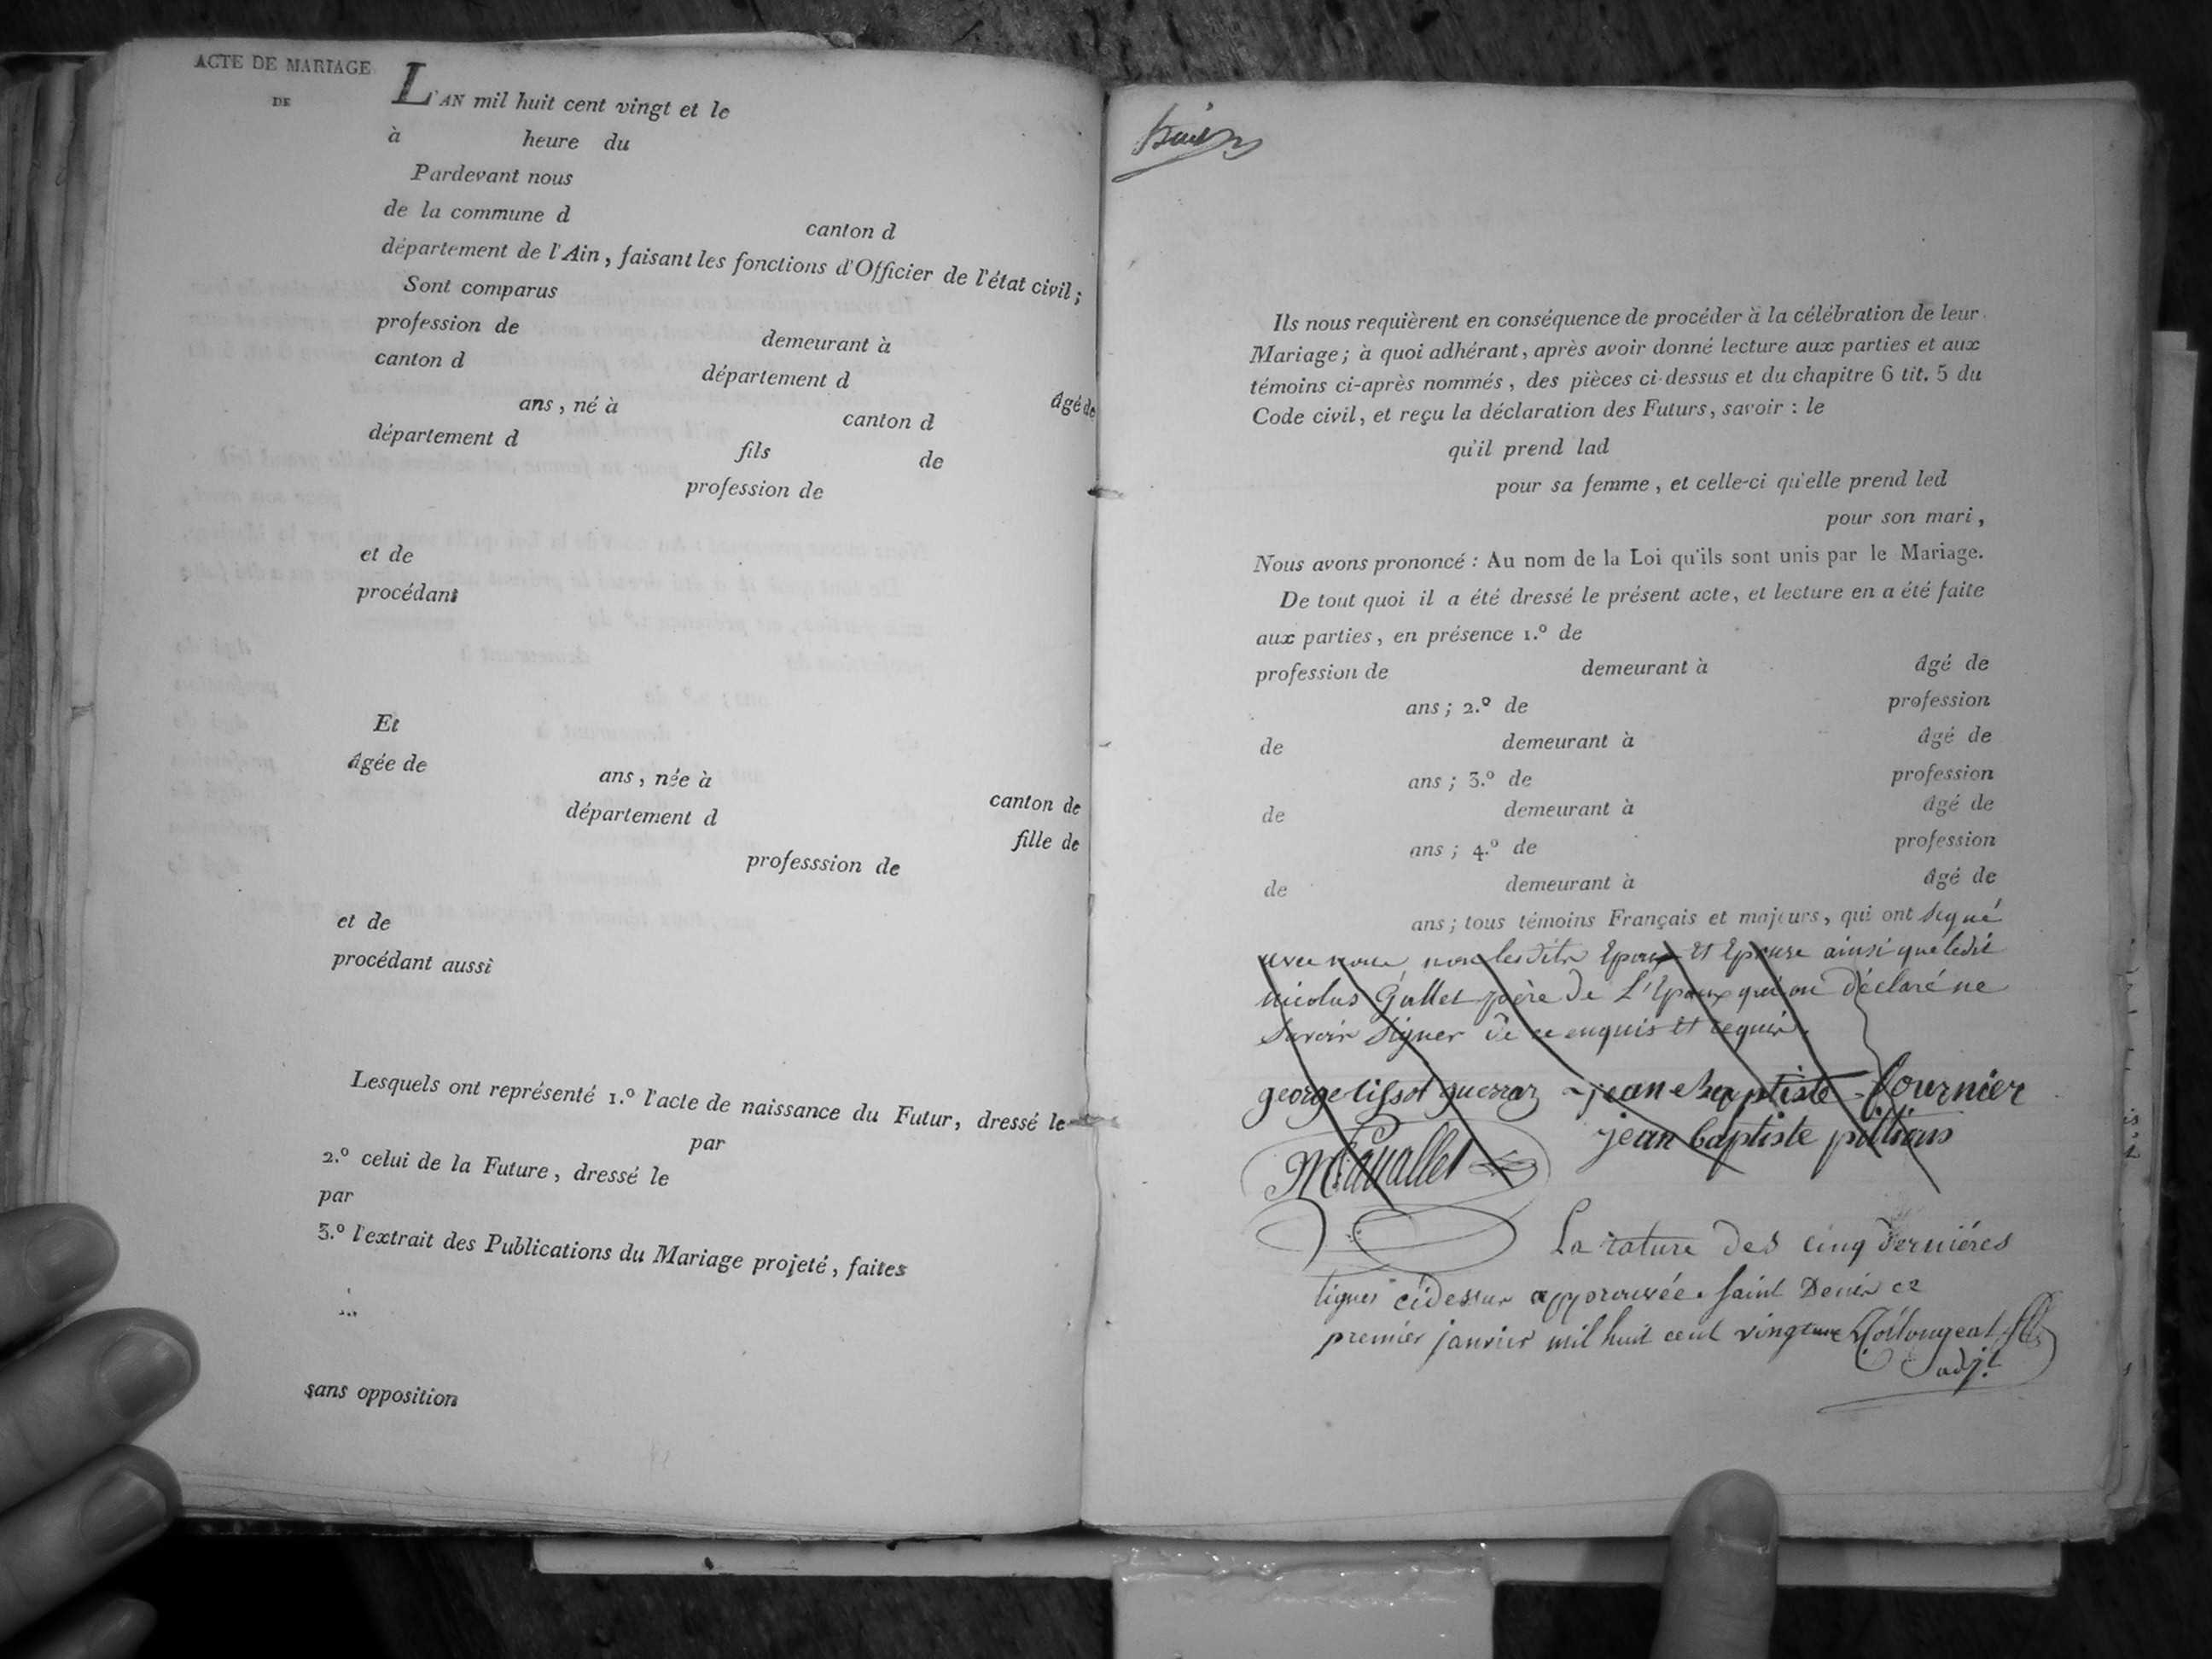 ACTE DE MARIAGE
DE
L'AN mil huit cent vingt et le
à heure du
Pardevant nous
de la commune d canton d
département de l'Ain, faisant les fonctions d'Officier de l'état civil;
Sont comparus
profession de demeurant à
canton d département d âgé de
ans, né à canton d
département d fils de
profession de
et de
procédant
Et
âgée de ans, née à canton de
département d fille de
professsion de
et de
procédant aussi
Lesquels ont représenté 1.º l'acte de naissance du Futur, dressé le
par
2.º celui de la Future, dressé le
par
3.º l'extrait des Publications du Mariage projeté, faites
sans opposition
Ils nous requièrent en conséquence de procéder à la célébration de leur
Mariage; à quoi adhérant, après avoir donné lecture aux parties et aux
témoins ci-après nommés, des pièces ci-dessus et du chapitre 6 tit. 5 du
Code civil, et reçu la déclaration des Futurs, savoir : le
qu'il prend lad
pour sa femme, et celle-ci qu'elle prend led
pour son mari,
Nous avons prononcé : Au nom de la Loi qu'ils sont unis par le Mariage.
De tout quoi il a été dressé le présent acte, et lecture en a été faite
aux parties, en présence 1.º de
profession de demeurant à âgé de
ans; 2.º de profession
de demeurant à âgé de
ans; 3.º de profession
de demeurant à âgé de
ans; 4.º de profession
de demeurant à âgé de
ans; tous témoins Français et majeurs, qui ont signé
avec nous, non lesdits Epoux Et Epouse ainsi que ledit
nicolas Gallet père de L'Epoux qui on déclaré ne
Savoir signer de ce enquis Et requis.
george tissot guerraz jean Baptiste fournier
jean baptiste
La rature des cinq dernières
lignes cidessus approuvée. saint Denis ce
premier janvier mil huit cent vingt une
adj.t